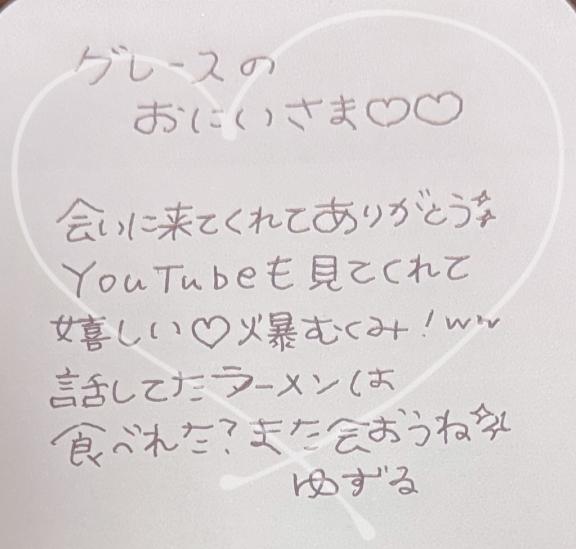 グレースの
おにいさま♡♡
会いに来てくれてありがとう☆
YouTubeも見てくれて
嬉しい♡爆むくみ!ww
話してたラーメンは
食べれた?また会おうね☆
ゆずる